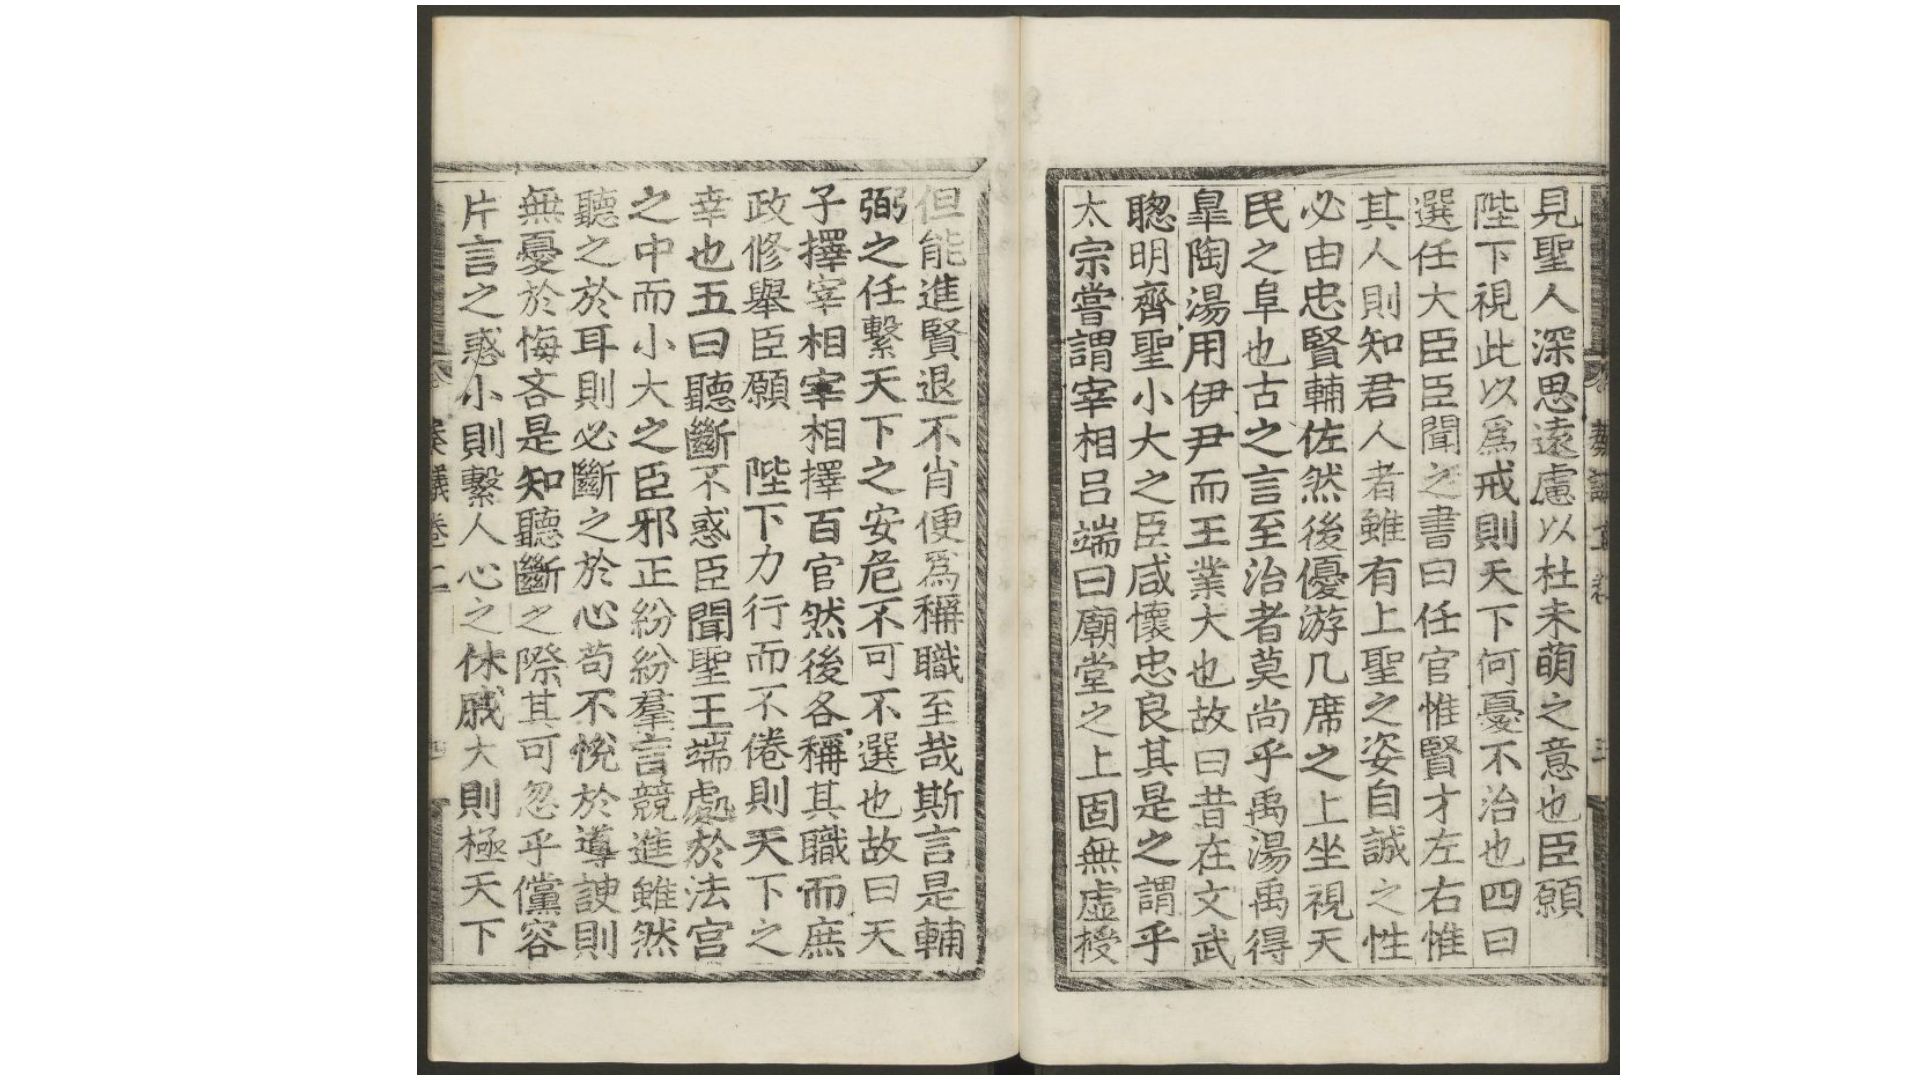 見聖人深思遠慮以杜未萌之意也臣願
陛下視此以爲戒則天下何憂不治也四曰
選任大臣臣聞之書曰任官惟賢才左右惟
其人則知君人者雖有上聖之姿自誠之性
必由忠賢輔佐然後優游几席之上坐視天
民之阜也古之言至治者莫尚乎禹湯禹得
皐陶湯用伊尹而王業大也故曰昔在文武
聦明齊聖小大之臣咸懷忠良其是之謂乎
太宗嘗謂宰相呂端曰廟堂之上固無虛授
但能進賢退不肖便爲稱職至哉斯言是輔
弼之任繫天下之安危不可不選也故曰天
子擇宰相宰相擇百官然後各稱其職而庶
政修舉臣願 陛下力行而不倦則天下之
幸也五曰聽斷不惑臣聞聖王端處於法宮
之中而小大之臣邪正紛紛羣言競進雖然
聽之於耳則必斷之於心苟不悅於導諛則
無憂於悔吝是知聽斷之際其可忽乎儻容
片言之惑小則繫人心之休戚大則極天下
奏議卷二
四